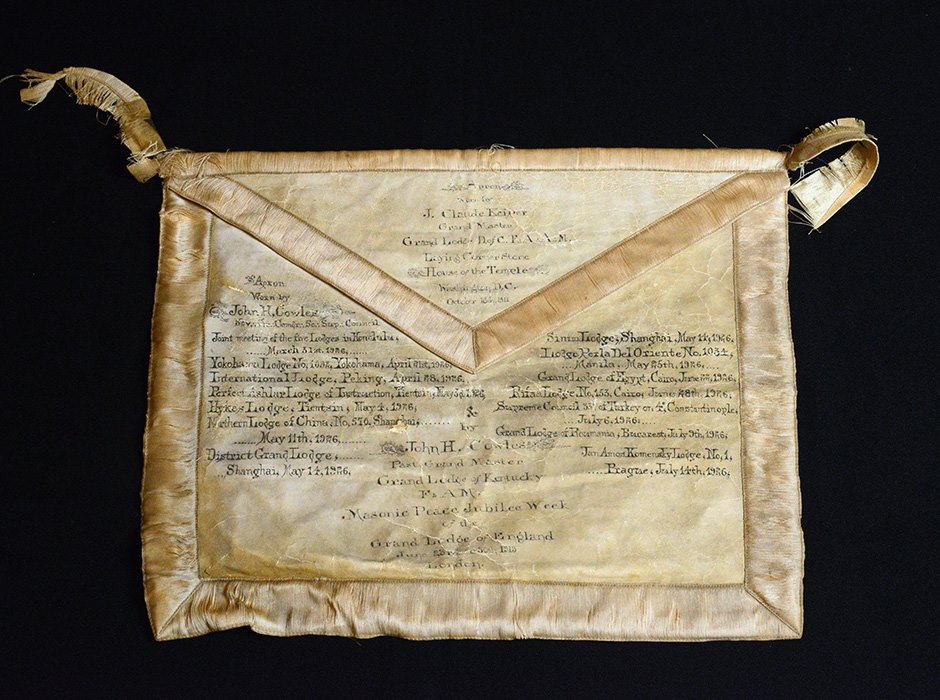 Apron
Worn by
J. Claude Keiper
Grand Master
Grand Lodge D. of C. F. A. A. M.
Laying Corner Stone
House of the Temple
Washington, D.C.
October 18th, 1911
Apron
Worn by
John H. Cowles
Sov. Gr. Comdr. Sou. Sup. Council
Joint meeting of the five Lodges in Honolulu,
March 31st, 1926,
Yokohama Lodge No. 1092, Yokohama, April 21st, 1926,
International Lodge, Peking, April 28, 1926,
Perfect Ashlar Lodge of Instruction, Tientsin, May 3d, 1926,
Hykes Lodge, Tientsin, May 4, 1926;
Northern Lodge of China, No. 570, Shanghai,
May 11th, 1926,
District Grand Lodge,
Shanghai, May 14, 1926,
Sinim Lodge, Shanghai, May 14, 1926,
Lodge Perla Del Oriente No. 1034,
Manila, May 25th, 1926,
Grand Lodge of Egypt, Cairo, June 1926,
Rifaa Lodge, No. 153, Cairo, June 28th, 1926;
Supreme Council 33° of Turkey on f. Constantinople,
July 6, 1926;
Grand Lodge of Roumania, Bucarest, July 9th, 1926;
Jan Amos Komensky Lodge, No. 1,
Prague, July 14th, 1926;
&
by
John H. Cowles
Past Grand Master
Grand Lodge of Kentucky
F & A M.
Masonic Peace Jubilee Week
of the
Grand Lodge of England
June 1919
London.